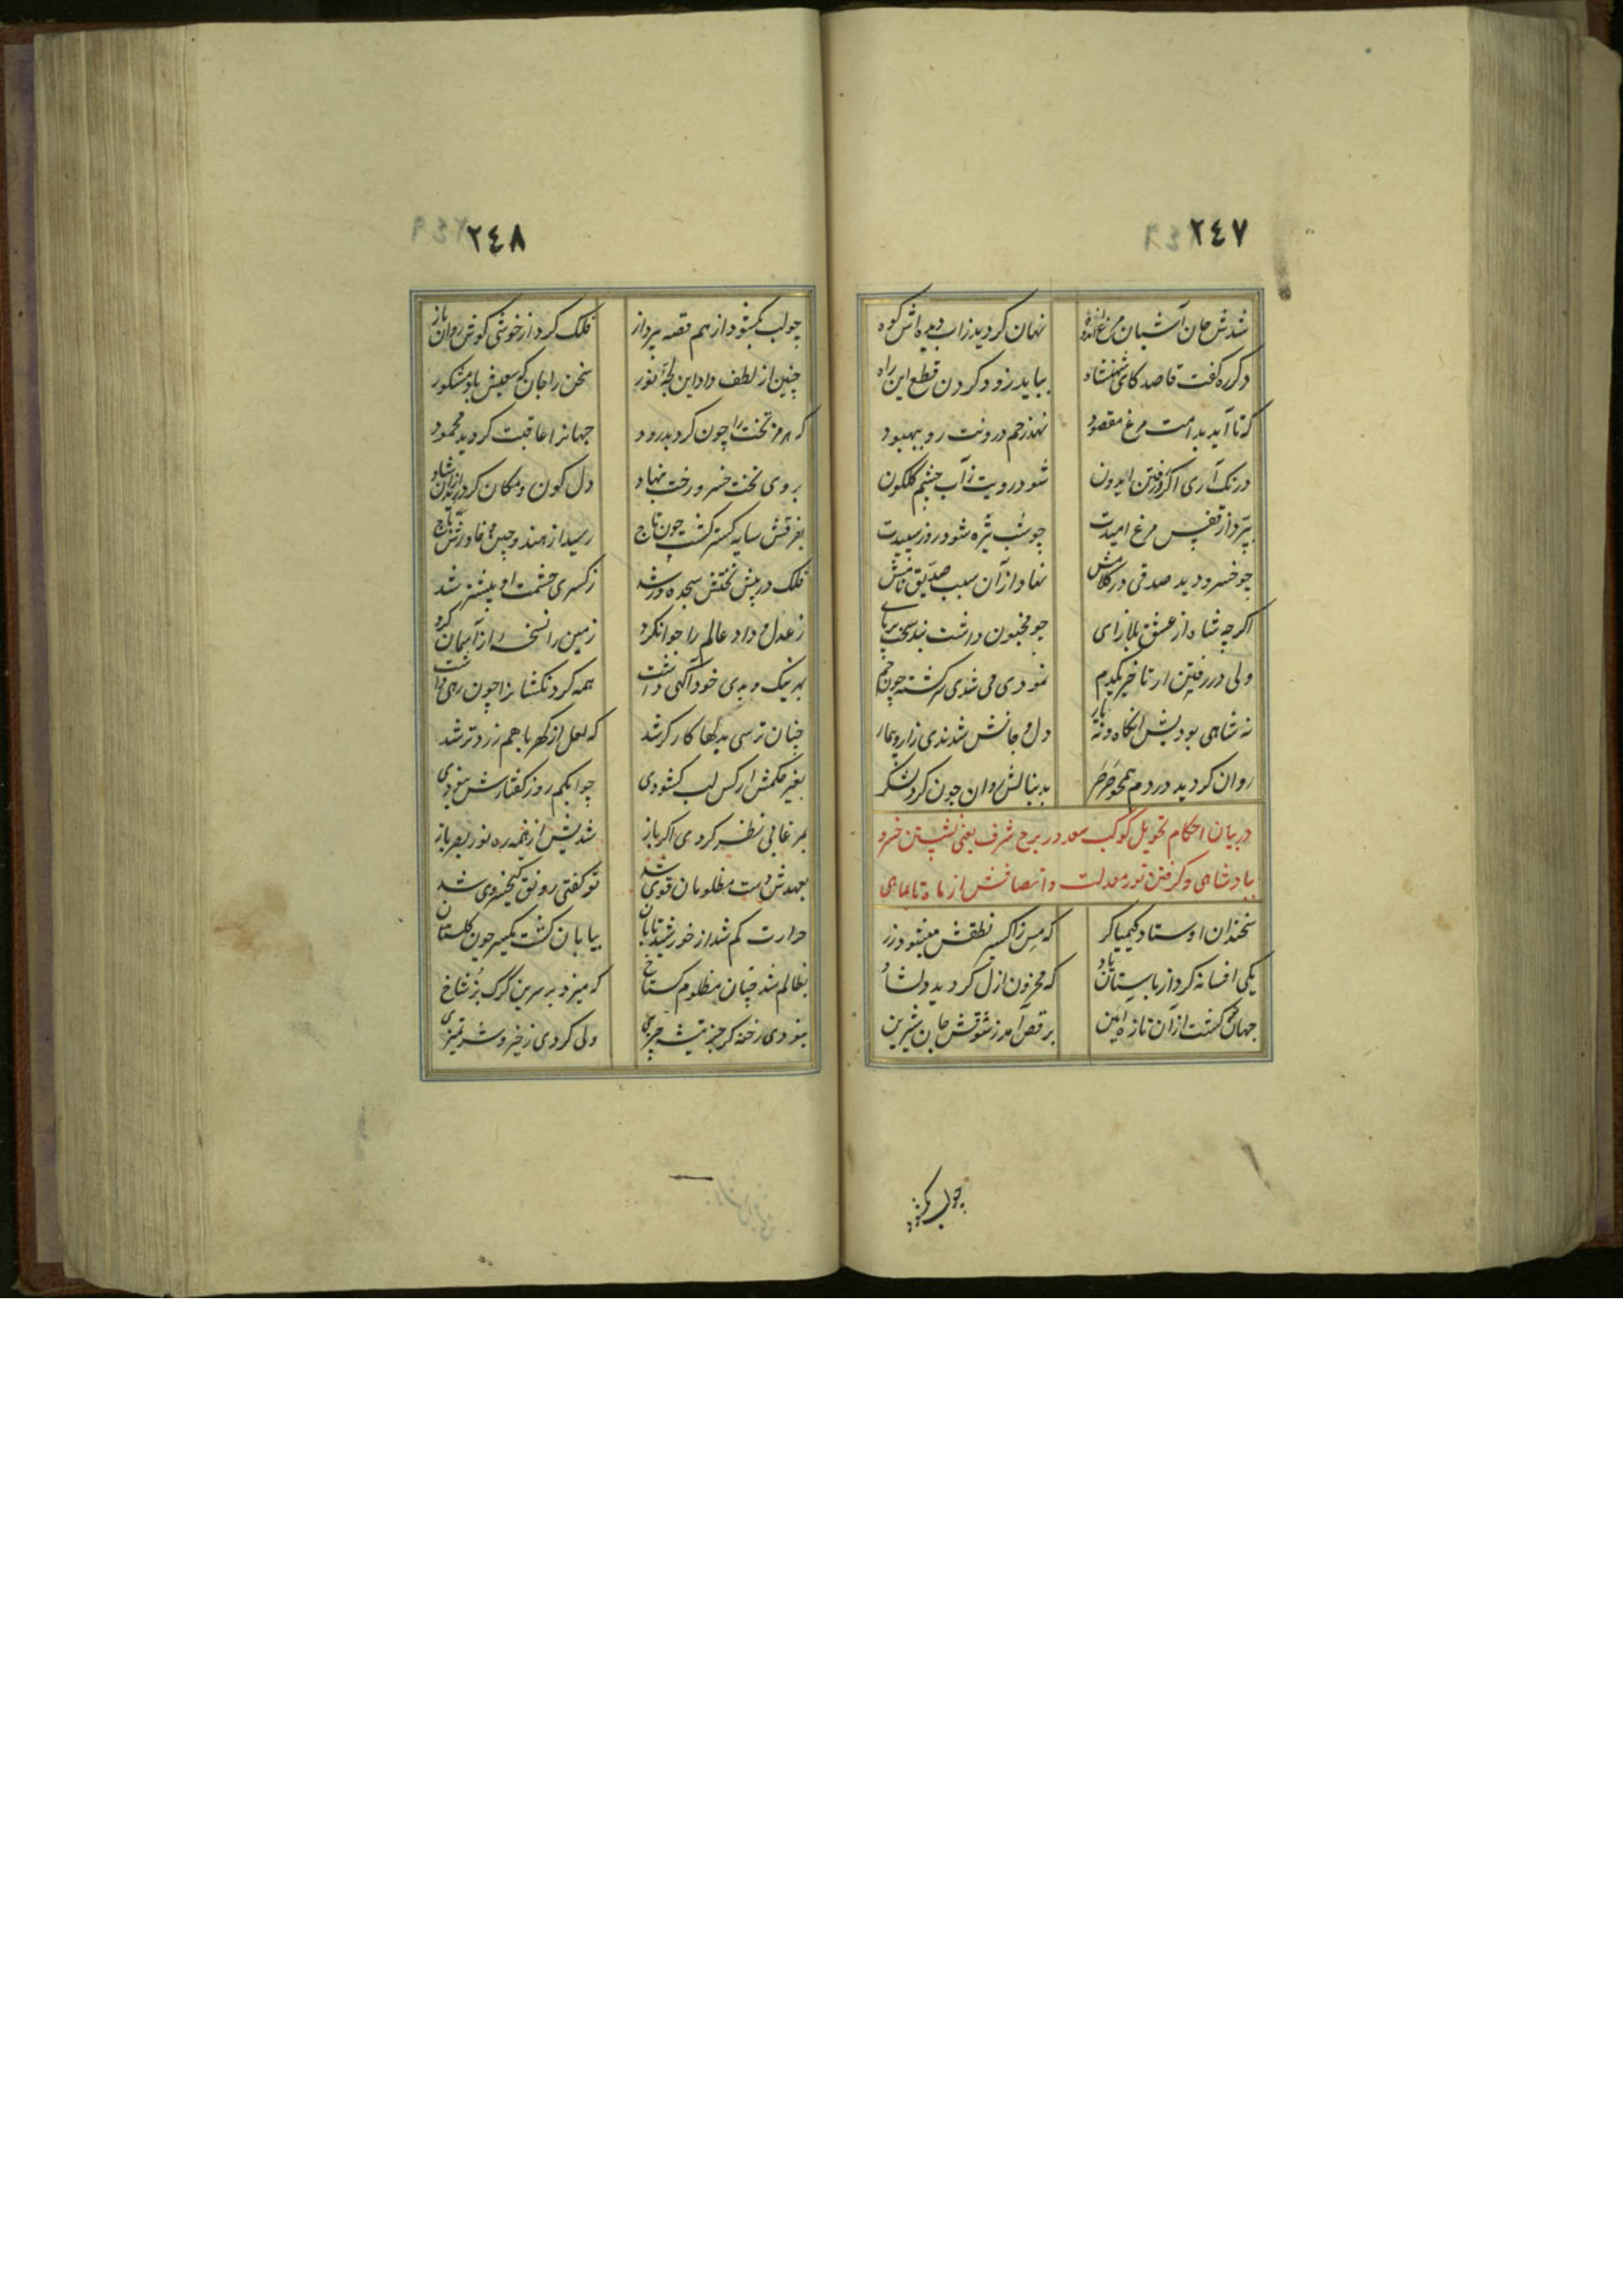 ٢٤٧
شدش جان آشیان مرغ اندوه نهان کردید زاب دیده اش کوه
دکر ره کفت قاصد کای شهنشاه بباید زود کردن قطع این راه
که تا آید بدامت مرغ مقصود نهد زخم درونت رو ببهبود
درنک آری اکر در رفتن ایدون شود رویت ز آب چشم کلکون
بپرد از قفس مرغ امیدت چو شب تیره شود روز سپیدت
چو خسرو دید صدقی در کلامش نهاد از آن سبب صدیق نامش
اکرچه شاه از عشق بلازای چو مجنون داشت بند سخت بر پای
ولی در رفتن ار تاخیر یکدم نمودی می شدی سرکشته چون جم
نه شاهی بودیش آنکاه و نه یار دل و جانش شدندی زار و بیمار
روان کردید در دم همچو صرصر بدنبالش روان چون کرد لشکر
در بیان احکام تحویل کوکب سعد در برج شرف یعنی نشستن خسرو
بپادشاهی و کرفتن نور معدلت و انصافش از ماه تا بماهی
سخندان اوستاد کیمیاکر که مس ز اکسیر نطقش میشود زر
یکی افسانه کرد از باستان یاد که محزون ازل کردید دلشاد
جهان کشت از آن تازه آیین برقص آمد ز شوقش جان شیرین
چو لب بکشود
٢٤٨
چو لب بکشود از هم قصه پرداز فلک کرد از خوشی کوش روان باز
چنین از لطف داد این لجه نور سخن را جان که سعیش باد مشکور
که هرمز تخت را چون کرد بدرود جهانرا عاقبت کردید محمود
بروی تخت خسرو رخت بنهاد دل کون و مکان کردید از آن شاد
بفرقش سایه کستر کشت چون تاج رسید از هند و چین و خاورش باج
فلک در پیش تختش سجده ور شد ز کسری حشمت او بیشتر شد
ز عدل و داد عالم را جوان کرد زمین را نسخه از آسمان کرد
بهر نیک و بدی خود آکهی داشت همه کردنکشانرا چون رهی داشت
چنان ترسی بدلها کارکر شد که لعل از کهربا هم زردتر شد
بغیر حکمش ار کس لب کشودی چو ابکم روز کفتارش نبودی
بمرغابی نظر کردی اکر باز شدیش از نیمه ره نور بصر باز
بعهدش دست مظلومان قوی شد تو کفتی رونق کیخسروی شد
حرارت کم شد از خورشید تابان بیابان کشت یکسر چون کلستان
بظالم شد چنان مظلوم کستاخ که میزد بر سرین کرک بز شاخ
نبودی رخنه کر جز تیشه چیزی ولی کردی ز خیر و شر تمیزی